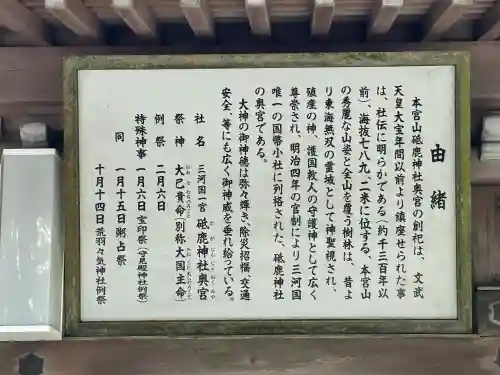 由緒
本宮山砥鹿神社奥宮の創祀は、文武
天皇大宝年間以前より鎮座せられた事
は、社伝に明らかである（約千三百年以
前）、海抜七八九、二米に位する、本宮山
の秀麗な山姿と全山を覆う樹林は、昔よ
り東海無双の霊域として神聖視され、
殖産の神、護国救人の守護神として広く
尊崇され、明治四年の官制により三河国
唯一の国幣小社に列格された、砥鹿神社
の奥宮である。
大神の御神徳は弥々輝き、除災招福、交通
安全、等にも広く御神威を垂れ給っている。
社名 三河国一宮 砥鹿神社奥宮
祭神 大己貴命（別称大国主命）
例祭 二月六日
特殊神事 一月六日 宝印祭（守見殿神社例祭）
同 一月十五日 粥占祭
十月十四日 荒羽々気神社例祭